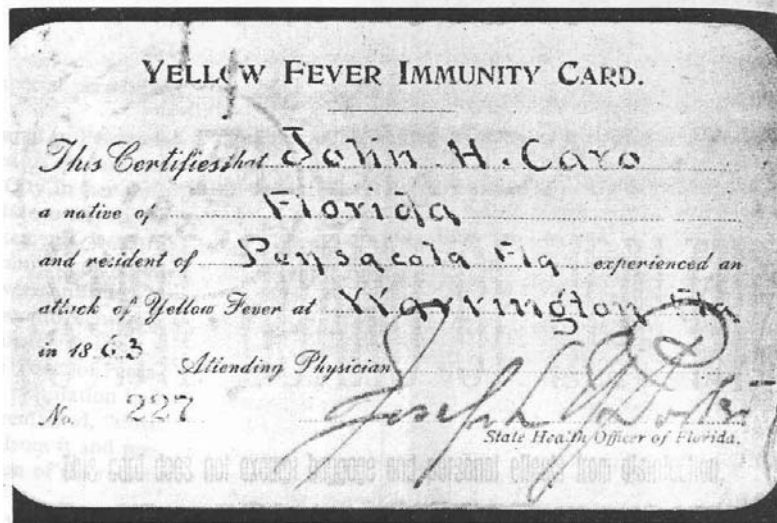 YELLOW FEVER IMMUNITY CARD.
This Certifies that John H. Caro
a native of Florida
and resident of Pensacola Fla experienced an
attack of Yellow Fever at Warrington Fla
in 1863 Attending Physician
No. 227 Joseph Y. Porter
State Health Officer of Florida.
This card does not exempt baggage and personal effects from disinfection.